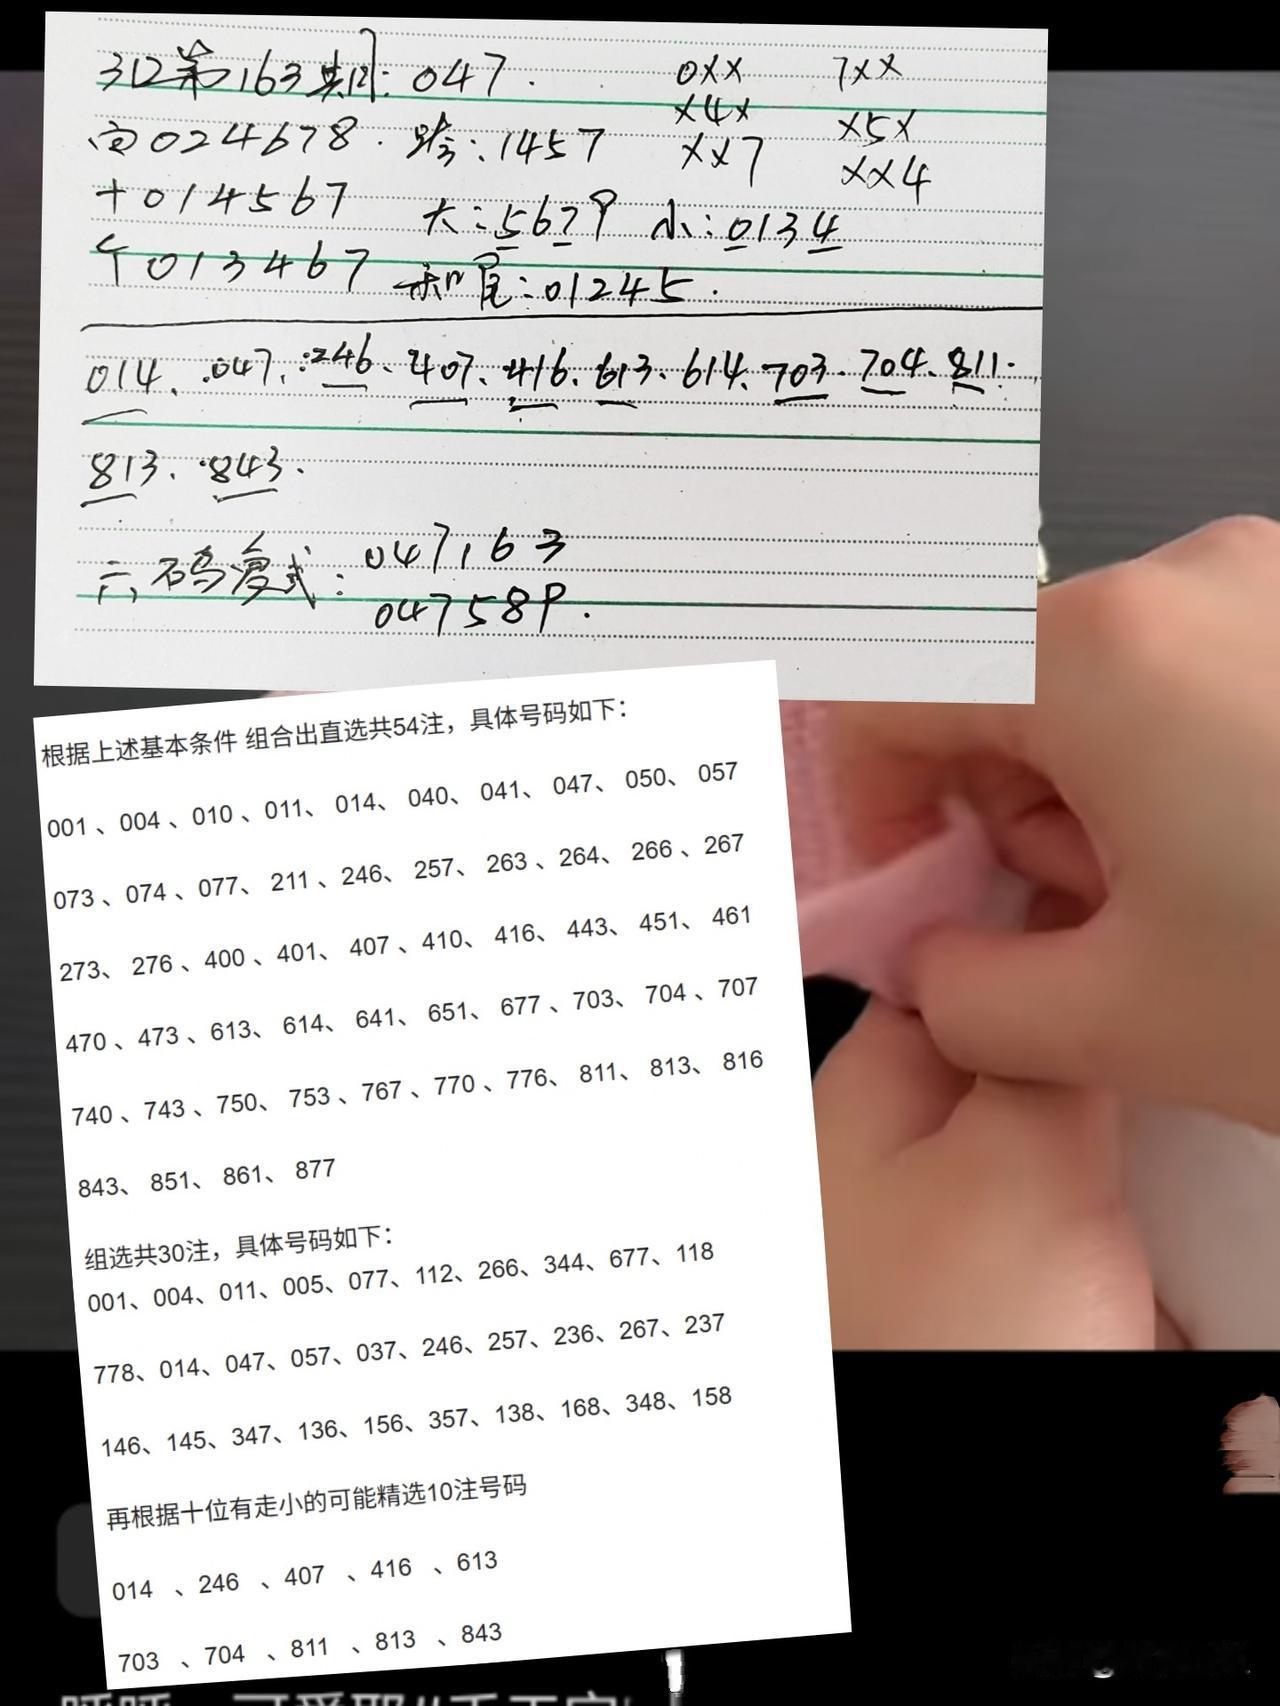 3D第163期:047.
0XX 7XX
X4X X5X
XX7 XX4
百024678. 跨:1457
十014567
大:5679 小:0134
个013467 和尾:01245.
014.047.246.407.416.613.614.703.704.811.
813.843.
六码复式:047163
047589.
根据上述基本条件 组合出直选共54注，具体号码如下：
001 、004 、010 、011、 014、 040、 041、 047、 050、 057
073 、074 、077、 211 、246、 257、 263 、264、 266 、267
273、 276 、400 、401、 407 、410、 416、 443、 451、 461
470 、473 、613、 614、 641、 651、 677 、703、 704 、707
740 、743 、750、 753 、767 、770 、776、 811、 813、 816
843、 851、 861、 877
组选共30注，具体号码如下：
001、004、011、005、077、112、266、344、677、118
778、014、047、057、037、246、257、236、267、237
146、145、347、136、156、357、138、168、348、158
再根据十位有走小的可能精选10注号码
014 、246 、407 、416 、613
703 、704 、811 、813 、843